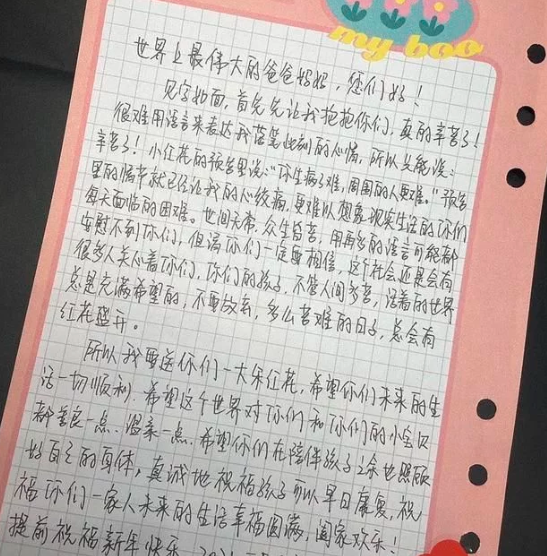 my boo
世界上最伟大的爸爸妈妈，您们好！
见字如面，首先先让我抱抱你们，真的辛苦了！
很难用语言来表达我落笔此刻的心情，所以只能说：
辛苦了！小红花的预告里说："你生病了难，周围的人更难。"预告
里的情节就已经让我的心绞痛，更难以想象现实生活的你们
每天面临的困难。世间无常，众生皆苦，用再多的语言可能都
安慰不到你们，但请你们一定要相信，这个社会还是会有
很多人关心着你们，你们的孩子，不管人间多苦，活着的世界
总是充满希望的，不要放弃，多么苦难的日子，总会有
红花盛开。
所以我要送你们一大朵红花，希望你们未来的生
活一切顺利，希望这个世界对你们和你们的小宝贝
都善良一点，温柔一点，希望你们在陪伴孩子之余也照顾
好自己的身体，真诚地祝福孩子可以早日康复，祝
福你们一家人未来的生活幸福圆满，阖家欢乐！
提前祝福新年快乐